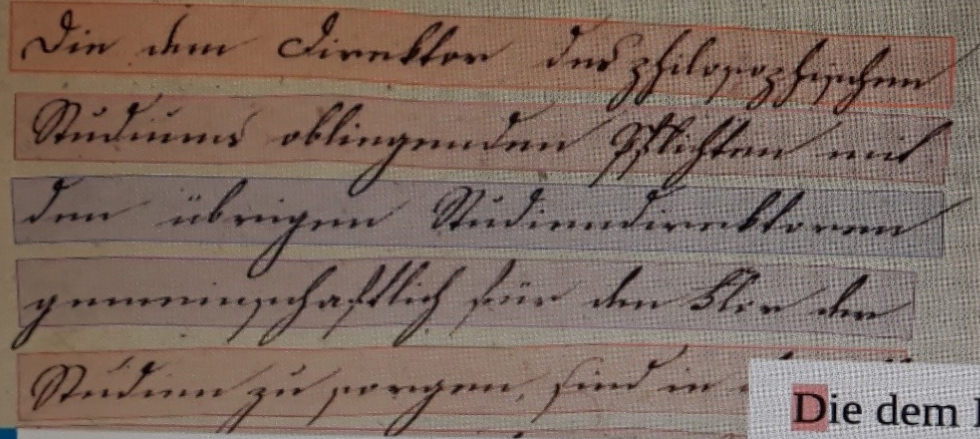 Die dem Direktor des philosophischen
Studiums obliegenden Pflichten mit
den übrigen Studiendirektoren
gemeinschaftlich für den Flor der
Studien zu sorgen, sind in
Die dem